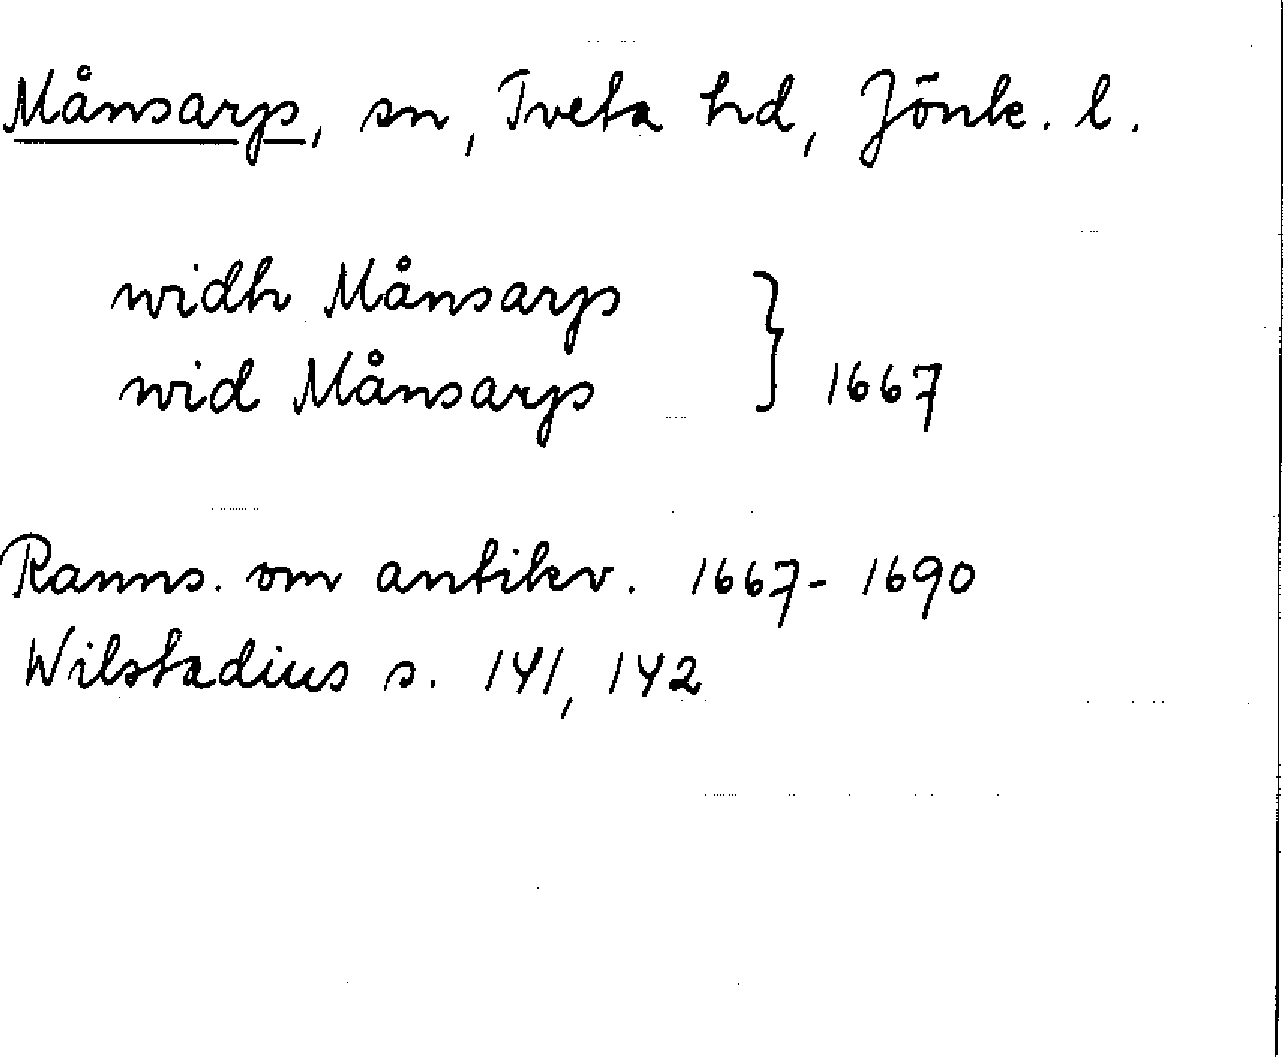 Månsarps, sn, Tveta hd, Jönk. l.
widh Månsarps
wid Månsarps } 1667
Ranns. om antikv. 1667-1690
Wilstadius s. 141, 142